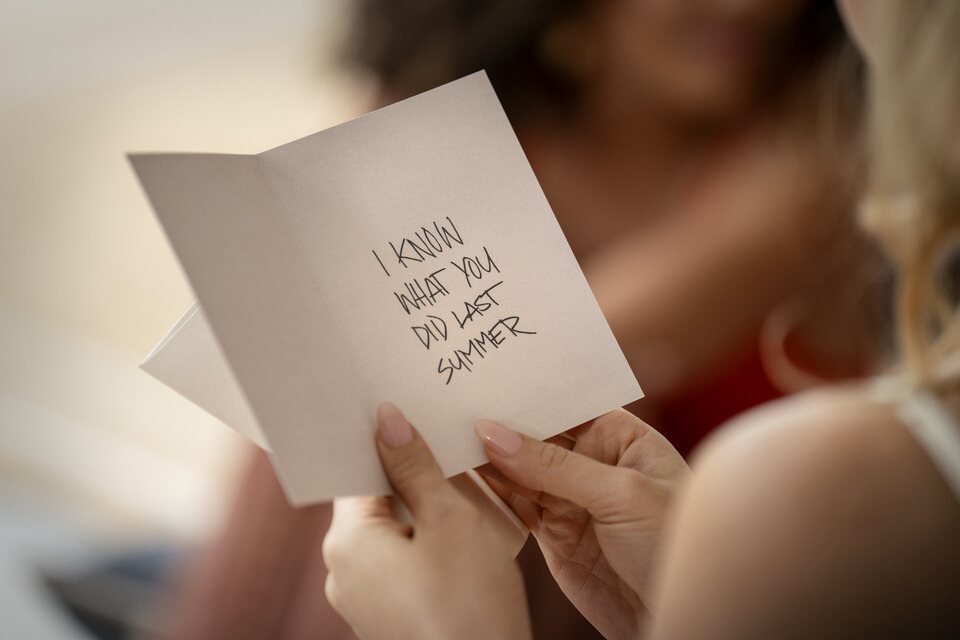 I KNOW
WHAT YOU
DID LAST
SUMMER